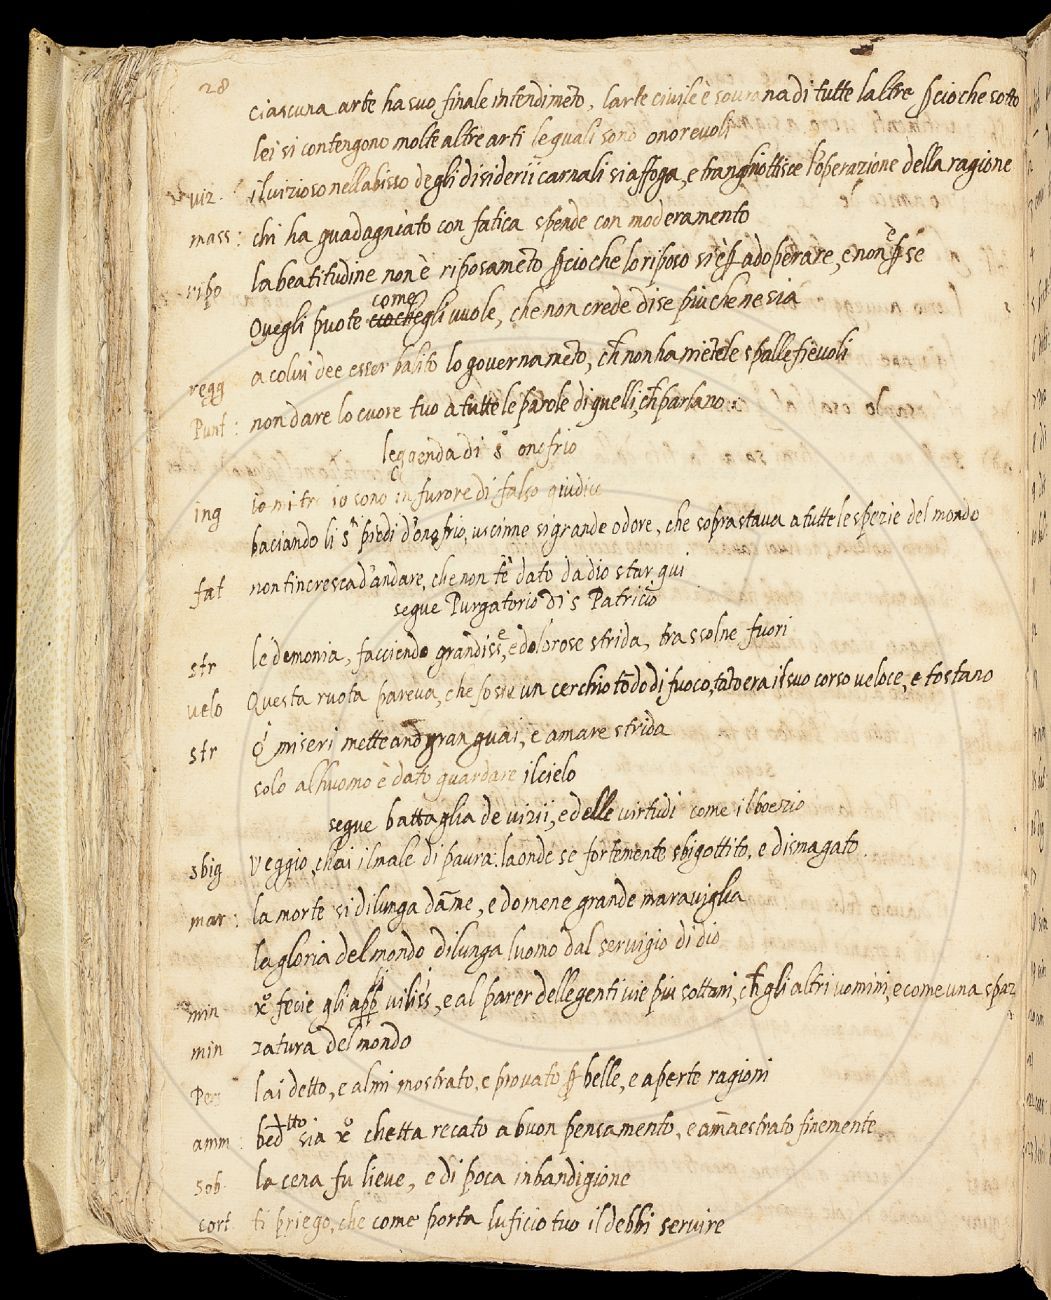 28
ciascuna arte ha suo finale intendimēto, l'arte ciuile è sourana di tutte l'altre ꝑcioche sotto
lei si contengono molte altre arti le quali sono onoreuoli
viz. il vizioso nell abisso degli disiderii carnali si affoga, e tranghiottisce l'operazione della ragione
mass: chi ha guadagniato con fatica spende con moderamento
ripo la beatitudine non è riposamēto ꝑcioche lo riposo si è ꝑ adoperare, e non è ꝑ sé
come
Quegli puote ciochegli uuole, che non crede di se piu che ne sia
regg a colui dee esser balito lo gouernamēto, ch̄ non ha mētele spalle fieuoli
Punt: non dare lo cuore tuo a tutte le parole di quelli, ch̄ parlano:
leggenda di s.º onofrio
ing io mi tr io sono in furore di falso giudice
baciando li s.ti piedi d'onofrio, uscinne si grande odore, che soprastaua a tutte le spezie del mondo
fat non t'incresca d'andare, che non t'è dato da dio star qui
segue Purgatorio di s Patricio
str le demonia, facciendo grandiss.e, e dolorose strida, trassolne fuori
velo Questa ruota pareua, che fosse un cerchio tōdo di fuoco, tāto era il suo corso veloce, e tostano
str o' miseri metteano gran guai, e amare strida
solo all huomo è dato guardare il cielo
segue battaglia de vizii, e delle virtudi come il boezio
sbig Veggio, ch'ai il male di paura: laonde se fortemente sbigottito, e dismagato
mar: la morte si dilunga dāme, e domene grande marauiglia
la gloria del mondo dilunga luomo dal seruigio di dio
min xº fecie gli app.li uiliss.i, e al parer delle genti uie piu sottani, ch̄ gli altri uomini, e come una spaz
min zatura del mondo
Per lai detto, e almi mostrato, e prouato ꝑ belle, e aperte ragioni
amm: bed.tto sia xº chetta recato a buon pensamento, e am̄aestrato finemente
sob. la cena fu lieue, e di poca inbandigione
cort ti priego, che come porta luficio tuo il debbi seruire